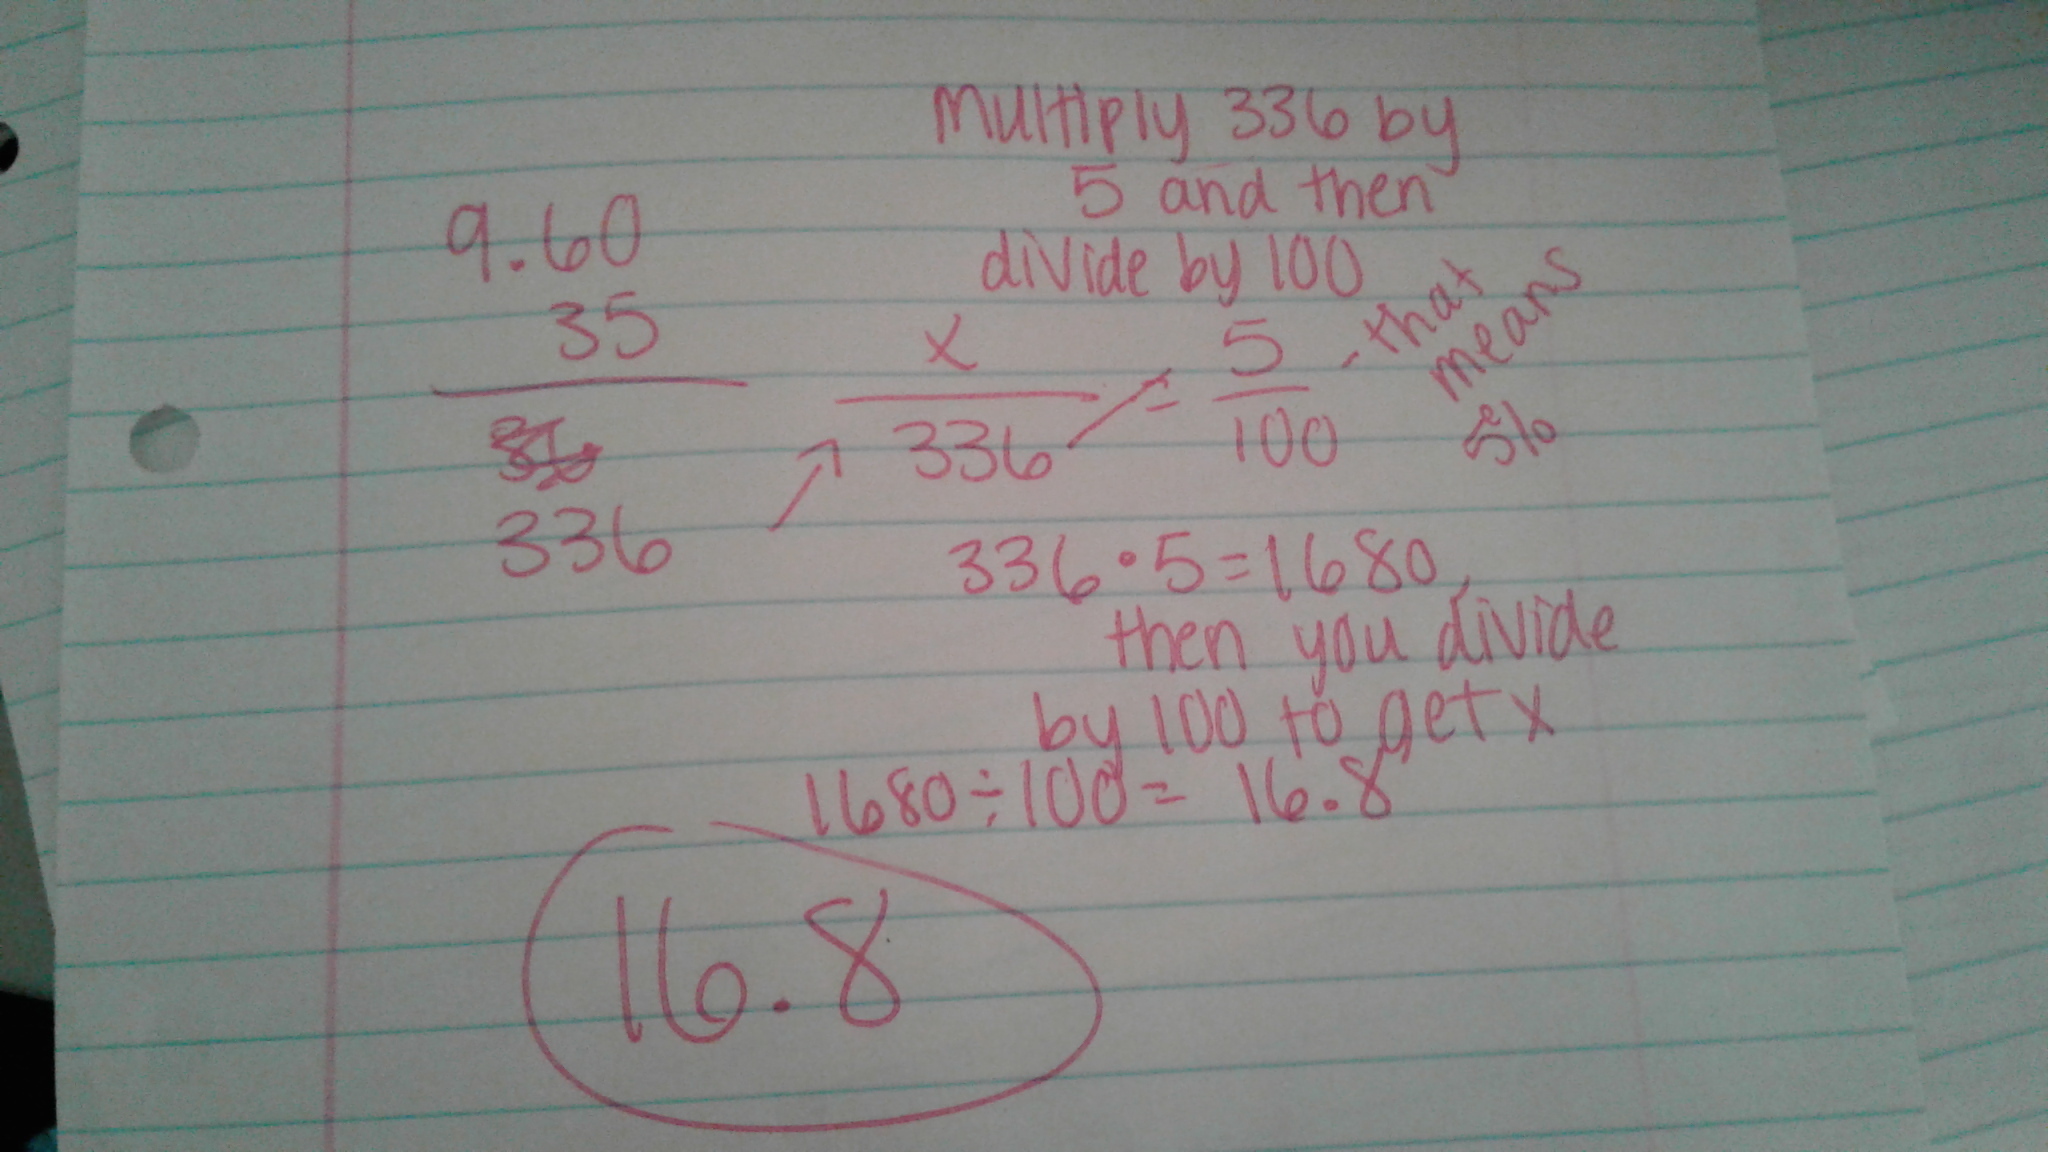 9.60
35
336
Multiply 336 by
5 and then
divide by 100
x/336 = 5/100 - that
means
5%
336 • 5 = 1680,
then you divide
by 100 to get x
1680 ÷ 100 = 16.8
16.8